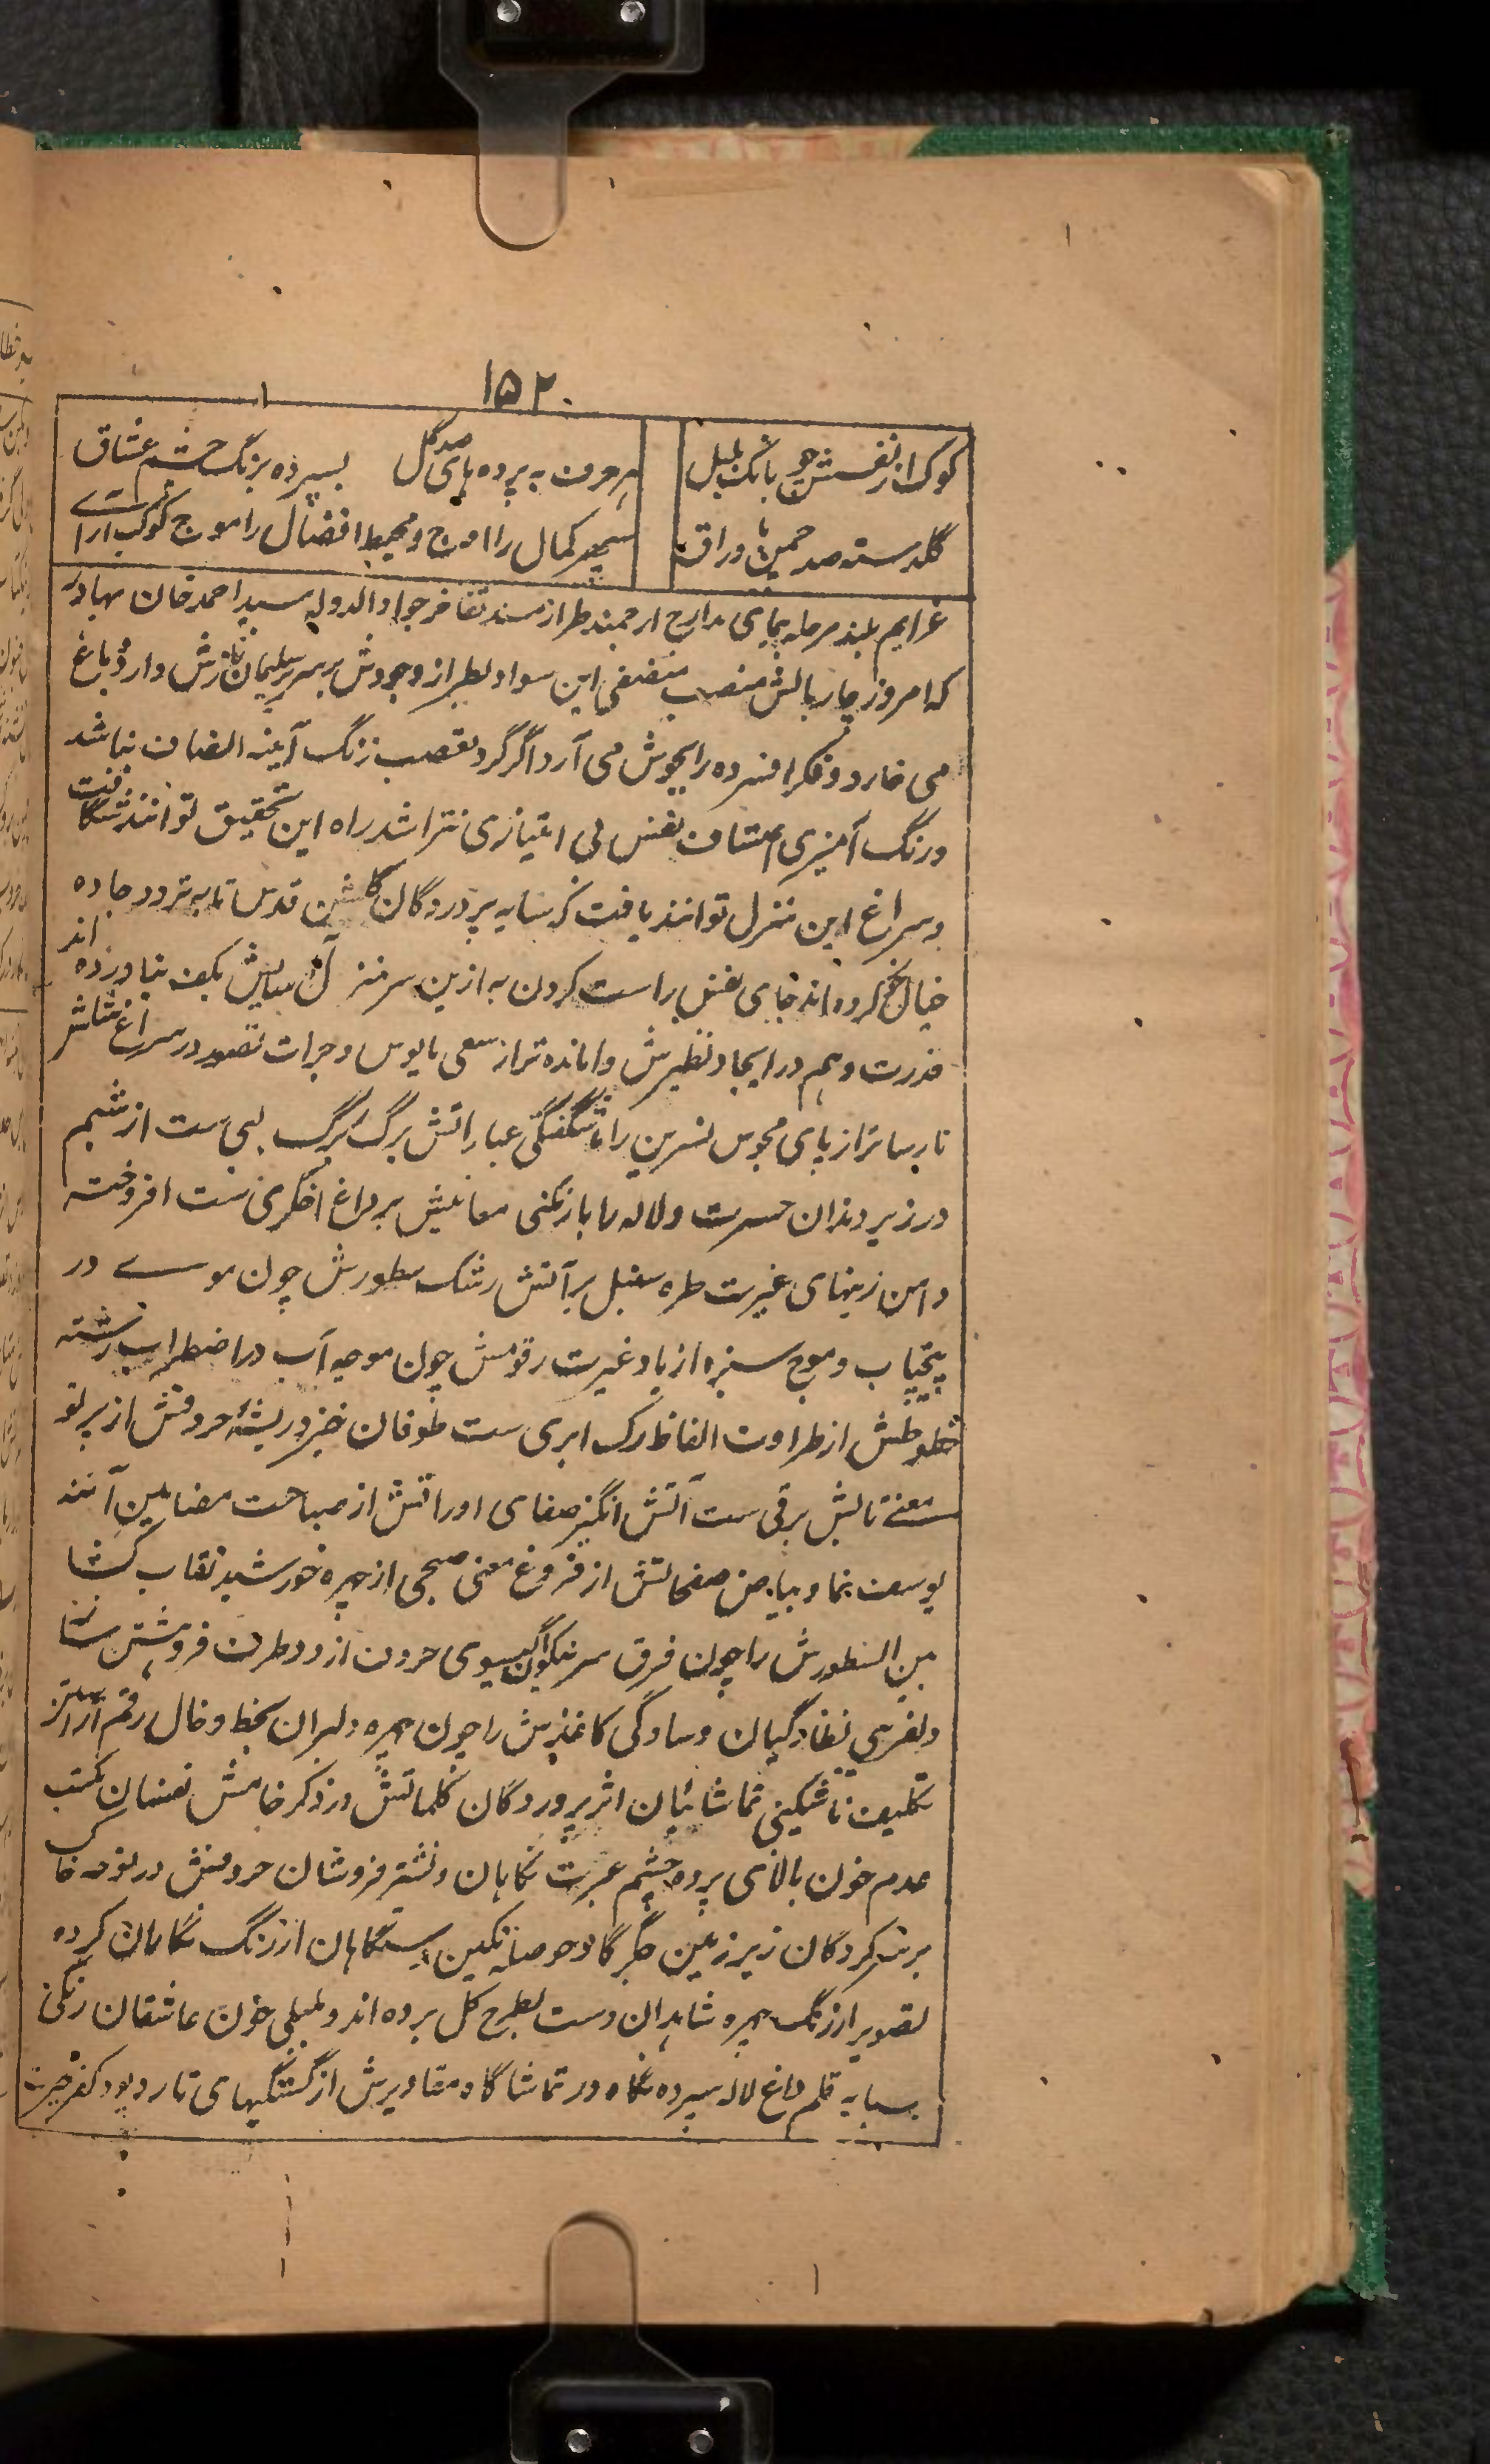 ۱۵۲
کوک از نفسش چو بانگ بلبل هر حرف به پرده های صد گل بسپرده برنگ چشم عشاق
گلدسته صد چمن باوراق سپهر کمال را اوج و محیط افضال را موج کوکب آرای
عرایم بلند مرحله پیمای مدارج ارجمند طراز مسند تفاخر جواد الدوله سید احمد خان بهادر
که امروز چار بالش منصب منصفی این سواد بطراز وجودش بر سریر سلیمان نازش دارد باغ
می خارد و فکر افسرده را بجوش می آرد اگر گرد تعصب زنگ آینه انصاف نباشد
و رنگ آمیزی اعتساف نقش بی امتیازی نتراشد راه این تحقیق توانند شگافت
و سراغ این منزل توانند یافت که سایه پروردگان گلشن قدس تا به تردد جاده
خیال کج کرده اند جای نفس راست کردن به ازین سرمنزل آسایش بکف نیاورده اند
قدرت وهم در ایجاد نظیرش وامانده تر از سعی مایوس و جرات تصور در سراغ مثالش
نارسا تر از پای محبوس نسرین را با شگفتگی عباراتش برگ برگ لبی ست از شبنم
در زیر دندان حسرت و لاله را با رنگینی معانیش بر داغ اخگری ست افروخته
دامن زینهای غیرت طره سنبل بر آتش رشک سطورش چون موے در
پیچتاب و موج سبزه از باد غیرت رقومش چون موجه آب در اضطراب رشته
خطوطش از طراوت الفاظ رگ ابری ست طوفان خیز و ریشهٔ حروفش از پرتو
معنے تابش برقی ست آتش انگیز صفای اوراقش از صباحت مضامین آئنه
یوسف نما و بیاض صفحاتش از فروغ معنی صبحی از چهره خورشید نقاب کشا
بین السطورش را چون فرق سر نیکوان گیسوی حروف از دو طرف فروهشتن
دلفریبی نظارگیان و سادگی کاغذش را چون چهره دلبران بخط و خال رقم آراستن
تکلیف ناشکیبی تماشائیان اثر پروردگان کلماتش در ذکر خامش نفسان مکتب
عدم خون پالای پرده چشم عبرت نگاهان و نشتر فروشان حروفش در توده خاک
بر سر کردگان زیر زمین جگر گاو حوصله
تصویر از رنگ چهره شاهدان دست بطرح گل برده اند و بلبلی خون عاشقان رنگی
بسایه قلم داغ لاله سپرده نگاه در تماشاگاه مقادیرش از گشتگیهای تار و پود کفر حیرت